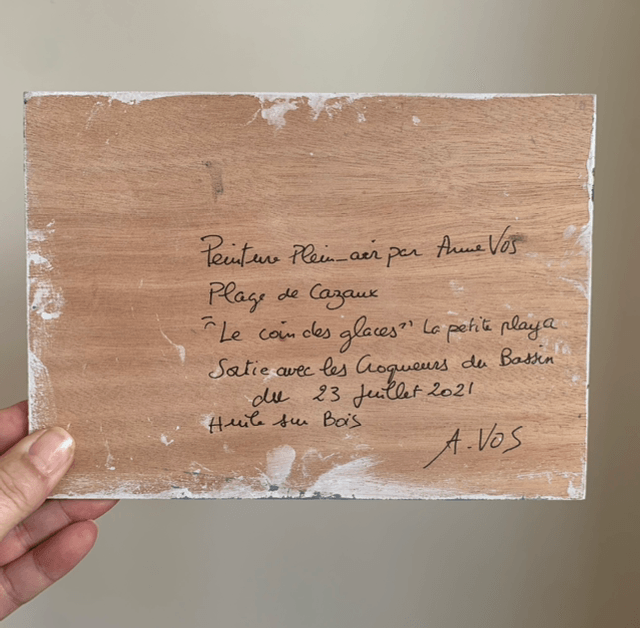 Peinture Plein-air par Anne Vos
Plage de Cazaux
"Le coin des glaces" La petite playa
Sortie avec les Croqueurs du Bassin
du 23 Juillet 2021
Huile sur Bois
A. VOS